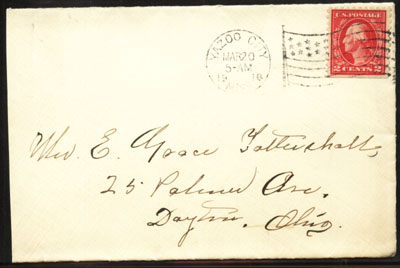 YAZOO CITY
MAR 20
5-AM
19
MISS.
U.S. POSTAGE
2 CENTS 2
E. Grace Tattershall,
25 Palmer Ave.
Dayton, Ohio.